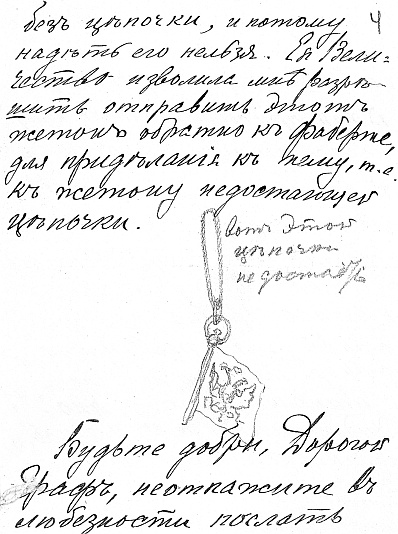 4
безъ цѣпочки, и потому
надѣть его нельзя. Ея Вели-
чество изволила мнѣ разрѣ-
шить отправить этотъ
жетонъ обратно къ Фаберже,
для придѣланія къ нему, т.е.
къ жетону недостающей
цѣпочки.
вотъ этой
цѣпочки
не достаетъ
Будьте добры, Дорогой
Графъ, неоткажите въ
любезности послать